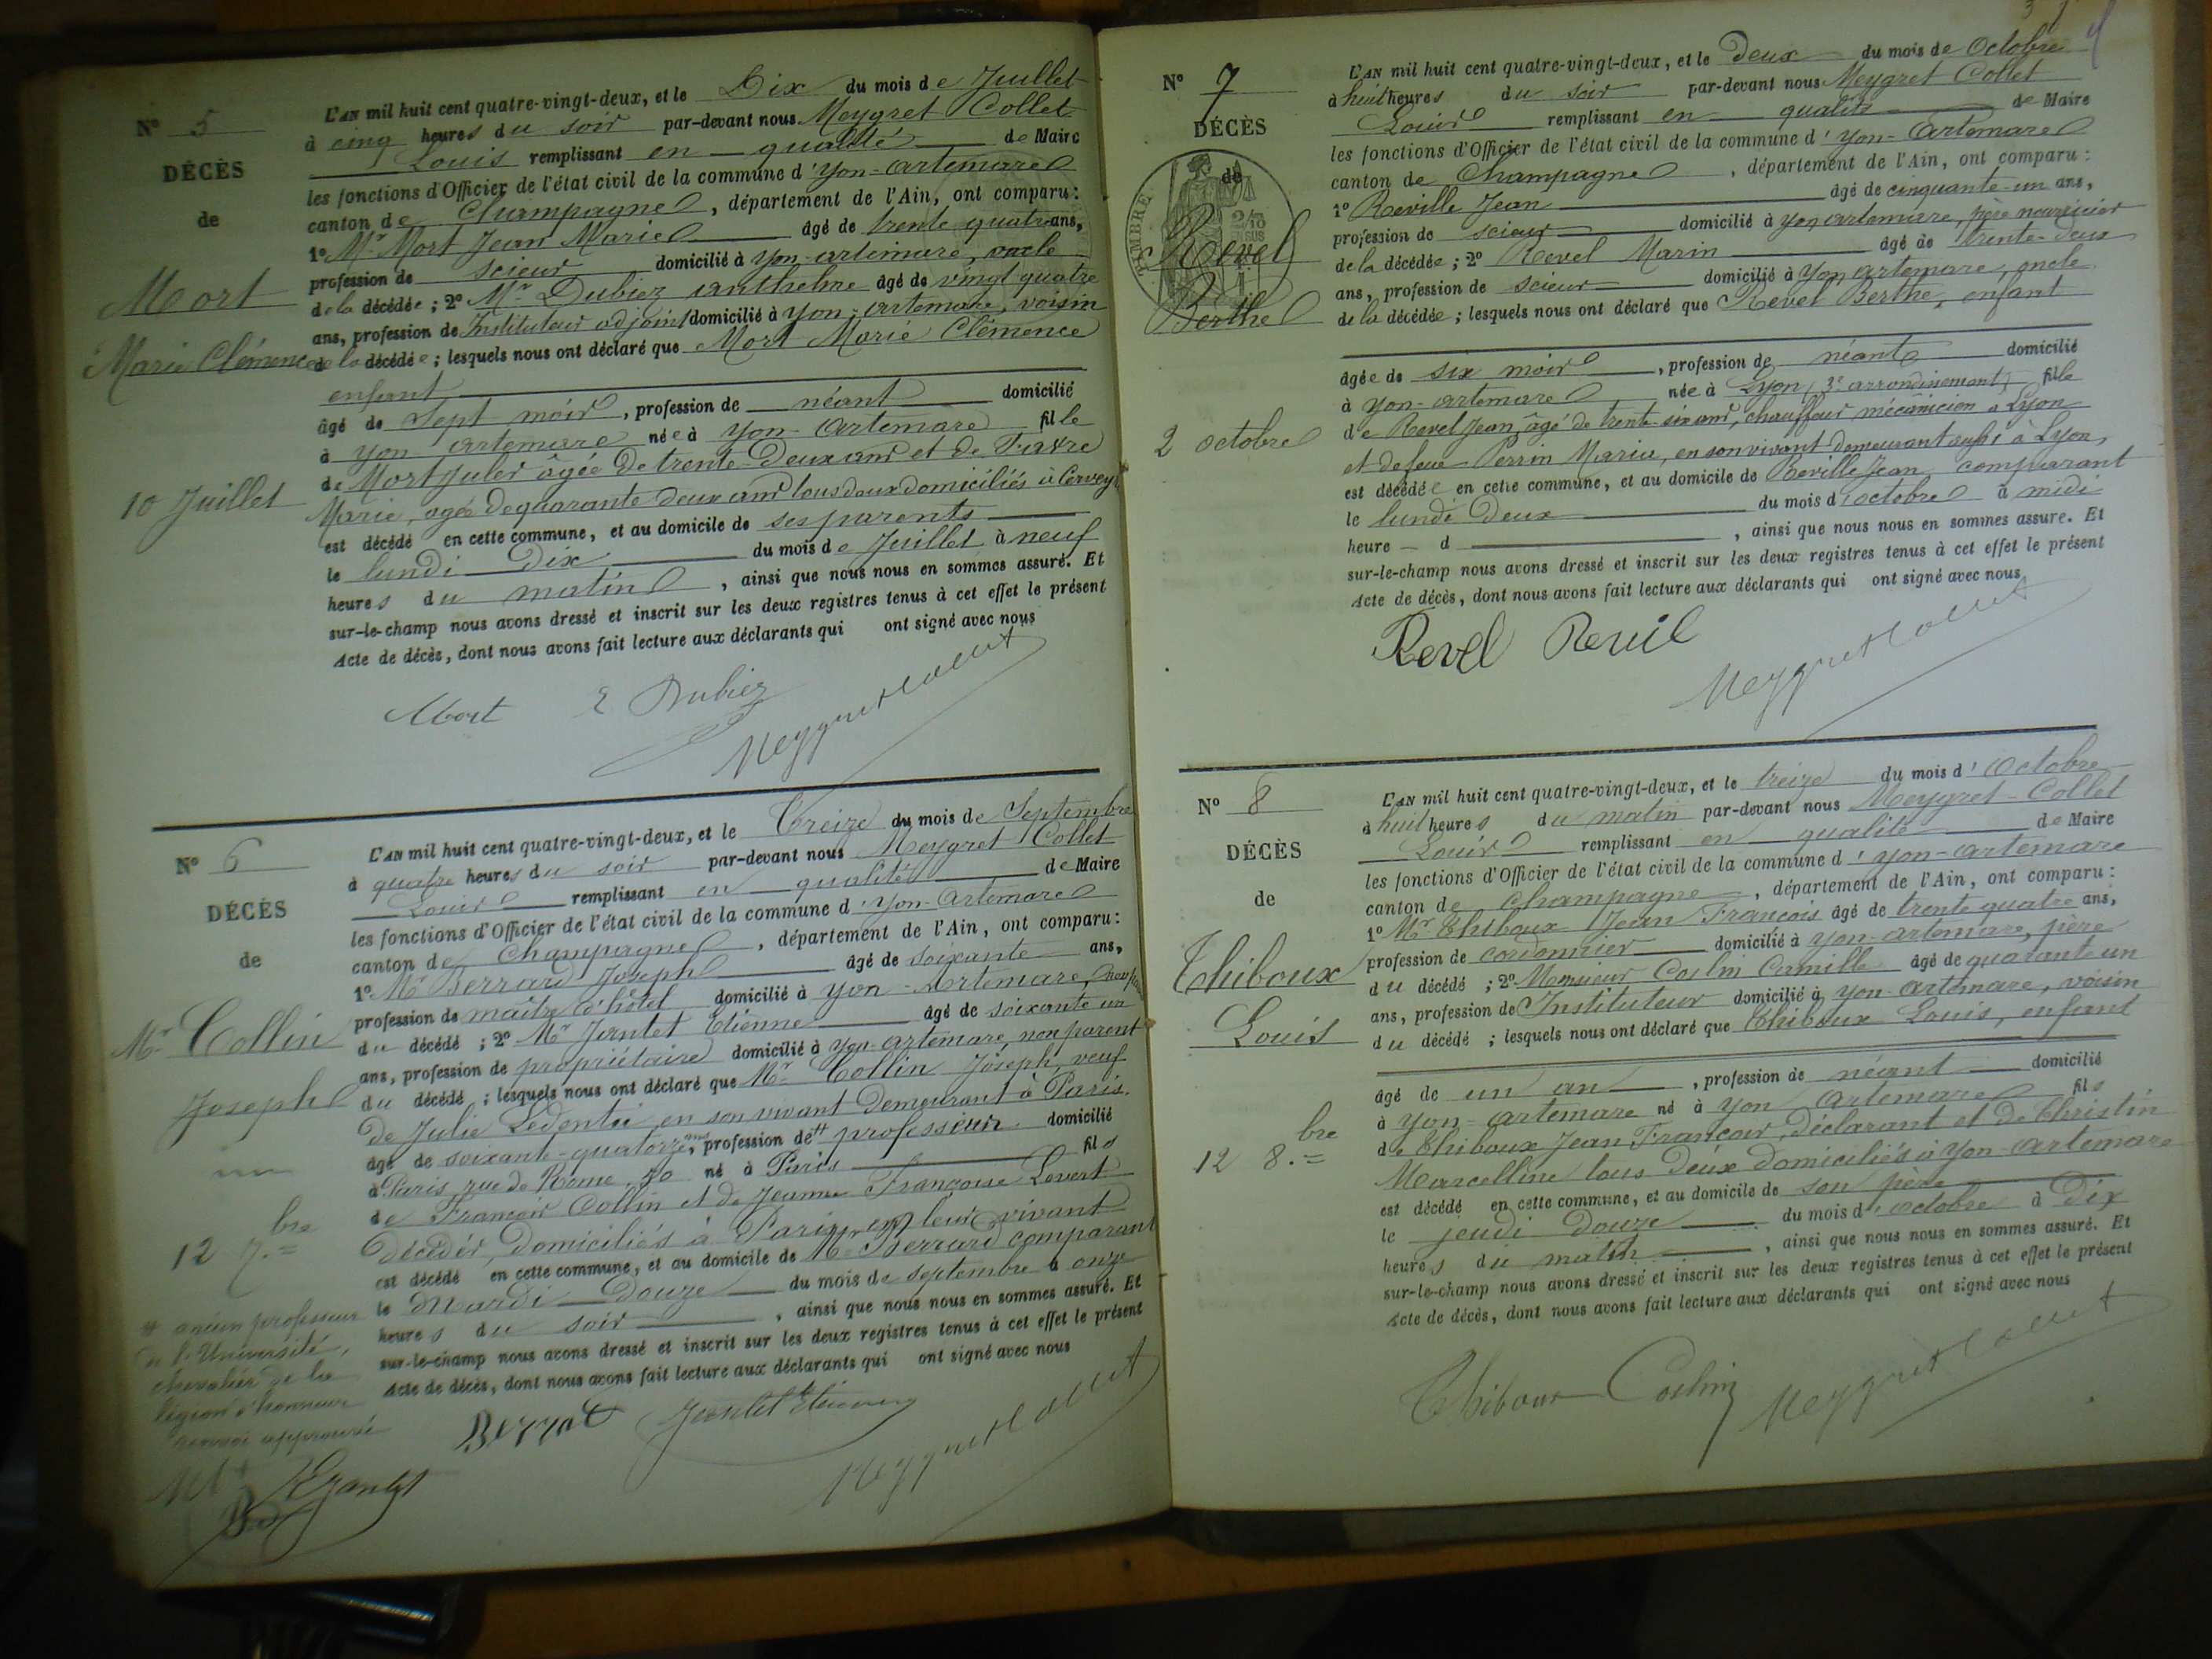 N° 5
DÉCÈS
de
Mort
Marie Clémence
10 Juillet
L'AN mil huit cent quatre-vingt-deux, et le Dix du mois de Juillet
à cinq heures du soir par-devant nous Meygret Collet
Louis remplissant en qualité de Maire
les fonctions d'Officier de l'état civil de la commune d'yon-artemare
canton de Champagne, département de l'Ain, ont comparu:
1° Mr Mort Jean Marie âgé de trente quatre ans,
profession de scieur domicilié à yon-artemare, oncle
de la décédée; 2° Mr Dubiez anthelme âgé de vingt quatre
ans, profession de Instituteur adjoint domicilié à yon-artemare, voisin
de la décédée; lesquels nous ont déclaré que Mort Marie Clémence
enfant
âgé de Sept mois, profession de néant domicilié
à yon artemare née à yon-artemare fille
de Mort Jules âgée de trente-deux ans et de
Marie, agée de quarante deux ans tous deux domiciliés à Cerveyr
est décédé en cette commune, et au domicile de ses parents
le lundi Dix du mois de Juillet à neuf
heures du matin, ainsi que nous nous en sommes assuré. Et
sur-le-champ nous avons dressé et inscrit sur les deux registres tenus à cet effet le présent
Acte de décès, dont nous avons fait lecture aux déclarants qui ont signé avec nous
Mort E Dubiez Meygret Collet
N° 6
DÉCÈS
de
Mr Collin
Joseph
12 7.bre
# ancien professeur
de l'Université,
chevalier de la
légion d'honneur
renvoi approuvé
L'AN mil huit cent quatre-vingt-deux, et le Treize du mois de Septembre
à quatre heures du soir par-devant nous Meygret Collet
Louis remplissant en qualité de Maire
les fonctions d'Officier de l'état civil de la commune d'yon-artemare
canton de Champagne, département de l'Ain, ont comparu:
1° Mr Berrard Joseph âgé de soixante ans,
profession de maître d'hôtel domicilié à yon-Artemare, non parent
du décédé; 2° Mr Jantet Etienne âgé de soixante un
ans, profession de propriétaire domicilié à yon-artemare, non parent
du décédé; lesquels nous ont déclaré que Mr Collin Joseph, veuf
de Julie en son vivant demeurant à Paris.
âgé de soixante-quatorze ans, profession de # professeur domicilié
à Paris, rue de Rome, 50 né à Paris fils
de François Collin et de Jeanne Françoise
décédés, domiciliés à Paris, en leur vivant
est décédé en cette commune, et au domicile de Mr Berrard comparant
le Mardi Douze du mois de septembre à onze
heures du soir, ainsi que nous nous en sommes assuré. Et
sur-le-champ nous avons dressé et inscrit sur les deux registres tenus à cet effet le présent
Acte de décès, dont nous avons fait lecture aux déclarants qui ont signé avec nous
Jantet Etienne Meygret Collet
N° 7
DÉCÈS
de
Revel
Berthe
2 octobre
L'AN mil huit cent quatre-vingt-deux, et le Deux du mois de Octobre
à huit heures du soir par-devant nous Meygret Collet
Louis remplissant en qualité de Maire
les fonctions d'Officier de l'état civil de la commune d'yon-Artemare
canton de Champagne, département de l'Ain, ont comparu:
1° Reville Jean âgé de cinquante-un ans,
profession de scieur domicilié à yon artemare, père nourricier
de la décédée; 2° Revel Marin âgé de trente-deux
ans, profession de scieur domicilié à yon artemare, oncle
de la décédée; lesquels nous ont déclaré que Revel Berthe, enfant
âgée de six mois, profession de néant domicilié
à yon-artemare née à Lyon (3e arrondissement) fille
de Revel Jean, âgé de trente-six ans, chauffeur mécanicien à Lyon
et de feue Perrin Marie, en son vivant demeurant aussi à Lyon,
est décédée en cette commune, et au domicile de Reville Jean comparant
le lundi Deux du mois d'octobre à midi
heure d, ainsi que nous nous en sommes assuré. Et
sur-le-champ nous avons dressé et inscrit sur les deux registres tenus à cet effet le présent
Acte de décès, dont nous avons fait lecture aux déclarants qui ont signé avec nous
Revel Revil Meygret Collet
N° 8
DÉCÈS
de
Thiboux
Louis
12 8.bre
L'AN mil huit cent quatre-vingt-deux, et le treize du mois d'Octobre
à huit heures du matin par-devant nous Meygret-Collet
Louis remplissant en qualité de Maire
les fonctions d'Officier de l'état civil de la commune d'yon-artemare
canton de Champagne, département de l'Ain, ont comparu:
1° Mr Thiboux Jean François âgé de trente quatre ans,
profession de cordonnier domicilié à yon-artemare, père
du décédé; 2° Monsieur Coslin Camille âgé de quarante un
ans, profession de Instituteur domicilié à yon-artemare, voisin
du décédé; lesquels nous ont déclaré que Thiboux Louis, enfant
âgé de un an, profession de néant domicilié
à yon-artemare né à yon artemare fils
de Thiboux Jean François, déclarant et de Christin
Marcelline tous deux domiciliés à yon-artemare
est décédé en cette commune, et au domicile de son père
le jeudi douze du mois d'octobre à Dix
heures du matin, ainsi que nous nous en sommes assuré. Et
sur-le-champ nous avons dressé et inscrit sur les deux registres tenus à cet effet le présent
Acte de décès, dont nous avons fait lecture aux déclarants qui ont signé avec nous
Thiboux Coslin Meygret Collet